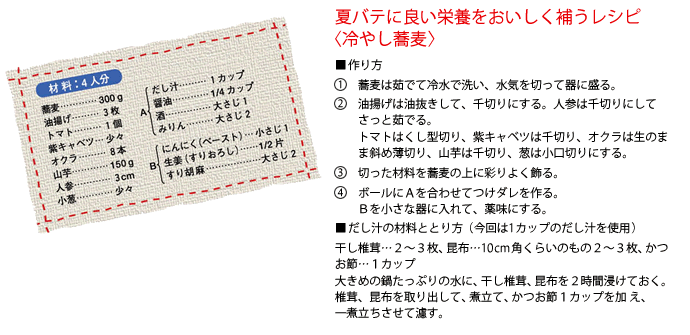 夏バテに良い栄養をおいしく補うレシピ
〈冷やし蕎麦〉
材料：4人分
蕎麦………… 300g
油揚げ………… 3枚
トマト………… 1個
紫キャベツ… 少々
オクラ………… 8本
山芋………… 150g
人参………… 3cm
小葱………… 少々
A
だし汁……… 1カップ
醤油……… 1/4カップ
酒………… 大さじ1
みりん…… 大さじ2
B
にんにく（ペースト）… 小さじ1
生姜（すりおろし）…… 1/2片
すり胡麻………… 大さじ2
■作り方
① 蕎麦は茹でて冷水で洗い、水気を切って器に盛る。
② 油揚げは油抜きして、千切りにする。人参は千切りにして
さっと茹でる。
トマトはくし型切り、紫キャベツは千切り、オクラは生のま
ま斜め薄切り、山芋は千切り、葱は小口切りにする。
③ 切った材料を蕎麦の上に彩りよく飾る。
④ ボールにAを合わせてつけダレを作る。
Bを小さな器に入れて、薬味にする。
■だし汁の材料ととり方（今回は1カップのだし汁を使用）
干し椎茸…２～３枚、昆布…10cm角くらいのもの２～３枚、かつ
お節…１カップ
大きめの鍋たっぷりの水に、干し椎茸、昆布を２時間浸けておく。
椎茸、昆布を取り出して、煮立て、かつお節１カップを加え、
一煮立ちさせて濾す。